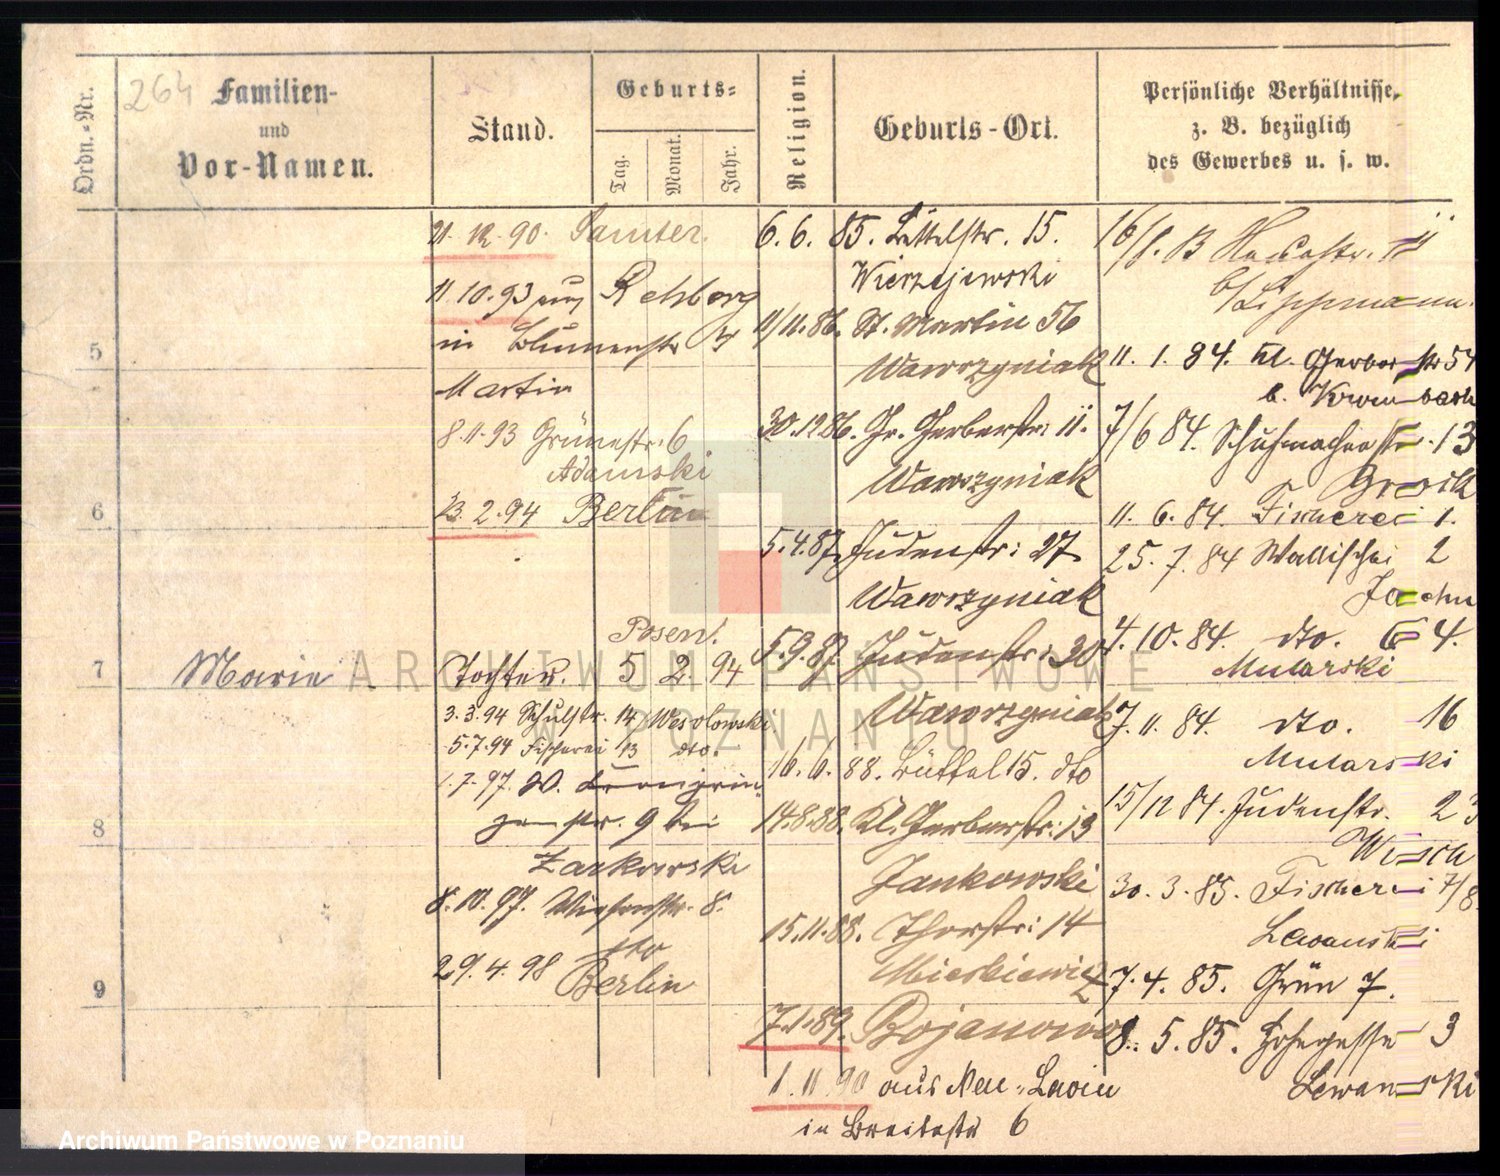 264
Ordn.-Nr.
Familien-
und
Vor-Namen.
Stand.
Geburts-
Tag.
Monat.
Jahr.
Religion.
Geburts-Ort.
Persönliche Verhältnisse,
z. B. bezüglich
des Gewerbes u. s. w.
21. 12. 90. Samter.
11. 10. 93 aus
in Blumenstr
Martin
8. 11. 93 Grünestr. 6
Adamski
13. 2. 94 Berlin
5
6
7
8
9
Posen.
Marie
Tochter. 5 2. 94
3. 3. 94 Schulstr. 14 Wesolowski
5. 7. 94 Fischerei 13 dto.
1. 7. 97. 20.
str. 9 bei
Zarkowski
8. 10. 97. Wiesenstr. 8.
dto
29. 4. 98 Berlin
6. 6. 85. Büttelstr. 15.
Wierzejewski
11/11. 86. St. Martin 56
Wawrzyniak
30. 12 86. Gr. Gerberstr: 11.
Wawrzyniak
5. 4. 87. Judenstr: 27
Wawrzyniak
5. 9. 87. Judenstr: 30
Wawrzyniak
16. 6. 88. Büttel 15. dto
14. 8. 88. Kl. Gerberstr: 13
Jankowski
15. 11. 88. Thorstr: 14
Mieskiewicz
7. 1. 89. Bojanowo
1. 11. 90 aus
in Breitestr 6
16/8. 83
b/Lippmann.
11. 1. 84. kl. Gerberstr 54
b.
7/6 84. Schuhmacherstr. 13
11. 6. 84. Fischerei 1.
25. 7. 84 Wallischei 2
4. 10. 84. dto. 64.
Mularski
7. 11. 84. dto. 16
Mularski
15/12 84. Judenstr. 23
30. 3. 85. Fischerei 7/8.
7. 4. 85. Grün 7.
8. 5. 85. Hohegasse 3
Lewanski
ARCHIWUM PAŃSTWOWE
W POZNANIU
Archiwum Państwowe w Poznaniu